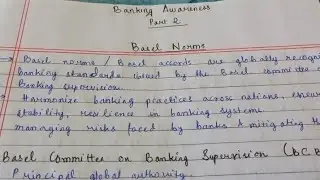 Banking Awareness
Part 2
Basel Norms
→ Basel norms / Basel accords are globally recogni
banking standards issued by the Basel committee o
Banking supervision.
→ Harmonize banking practices across nations, ensur
stability, resilience in banking systems.
managing risks faced by banks & mitigating th
Basel Committee on Banking Supervision (BCB
Principal global authority